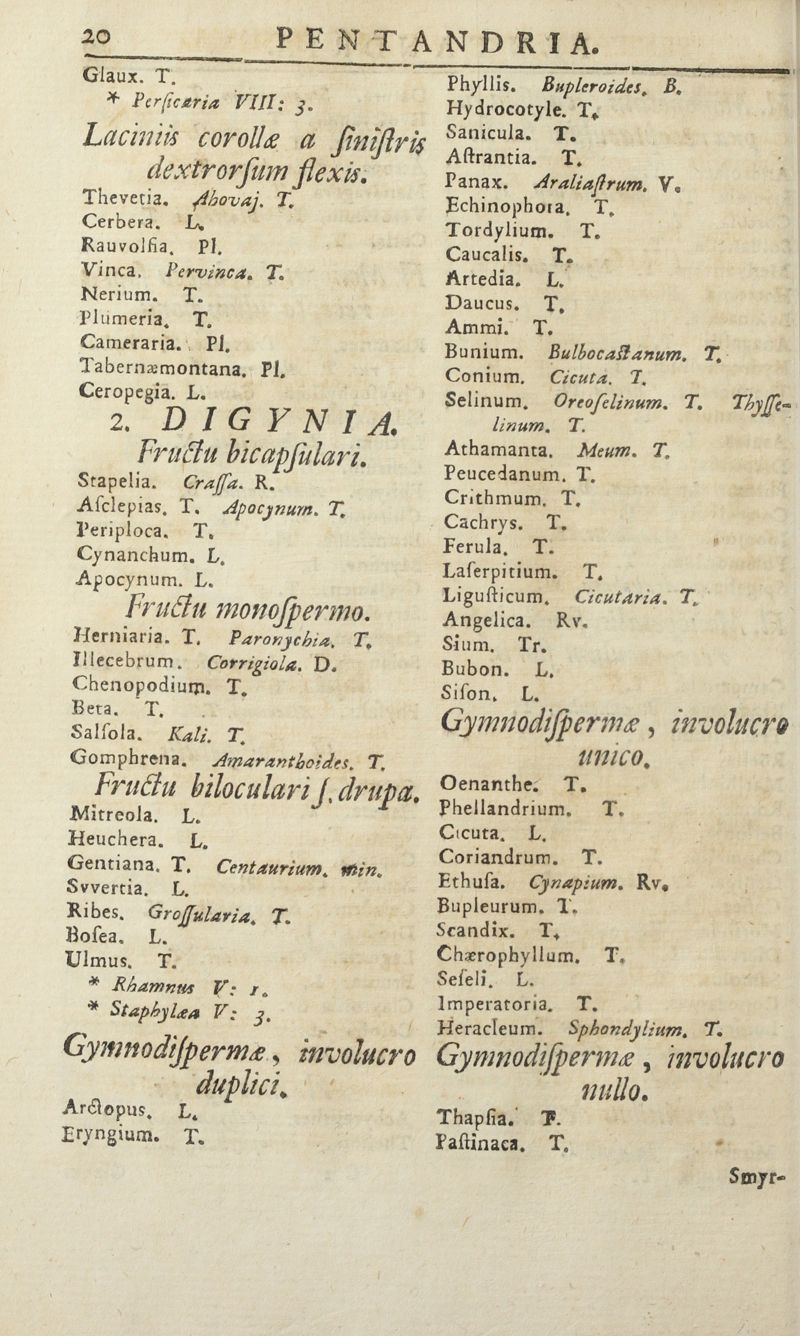 20 PENTANDRIA.
Glaux. T.
* Perſicaria VIII: 3.
Laciniis corollæ a ſiniſtris
dextrorſum flexis.
Thevetia. Ahovaj. T.
Cerbera. L.
Rauvolfia. Pl.
Vinca. Pervinca. T.
Nerium. T.
Plumeria. T.
Cameraria. Pl.
Tabernæmontana. Pl.
Ceropegia. L.
2. DIGYNIA.
Fructu bicapſulari.
Stapelia. Craſſa. R.
Aſclepias. T. Apocynum. T.
Periploca. T.
Cynanchum. L.
Apocynum. L.
Fructu monoſpermo.
Herniaria. T. Paronychia. T.
Illecebrum. Corrigiola. D.
Chenopodium. T.
Beta. T.
Salſola. Kali. T.
Gomphrena. Amaranthoides. T.
Fructu biloculari ſ. drupa.
Mitreola. L.
Heuchera. L.
Gentiana. T. Centaurium. min.
Svvertia. L.
Ribes. Groſſularia. T.
Boſea. L.
Ulmus. T.
* Rhamnus V: 1.
* Staphylæa V: 3.
Gymnodiſpermæ, involucro
duplici.
Arctopus. L.
Eryngium. T.
Phyllis. Bupleroides. B.
Hydrocotyle. T.
Sanicula. T.
Aſtrantia. T.
Panax. Araliaſtrum. V.
Echinophora. T.
Tordylium. T.
Caucalis. T.
Artedia. L.
Daucus. T.
Ammi. T.
Bunium. Bulbocaſtanum. T.
Conium. Cicuta. T.
Selinum. Oreoſelinum. T. Thyſſe-
linum. T.
Athamanta. Meum. T.
Peucedanum. T.
Crithmum. T.
Cachrys. T.
Ferula. T.
Laſerpitium. T.
Liguſticum. Cicutaria. T.
Angelica. Rv.
Sium. Tr.
Bubon. L.
Siſon. L.
Gymnodiſpermæ, involucro
unico.
Oenanthe. T.
Phellandrium. T.
Cicuta. L.
Coriandrum. T.
Ethuſa. Cynapium. Rv.
Bupleurum. T.
Scandix. T.
Chærophyllum. T.
Seſeli. L.
Imperatoria. T.
Heracleum. Sphondylium. T.
Gymnodiſpermæ, involucro
nullo.
Thapſia. T.
Paſtinaca. T.
Smyr-